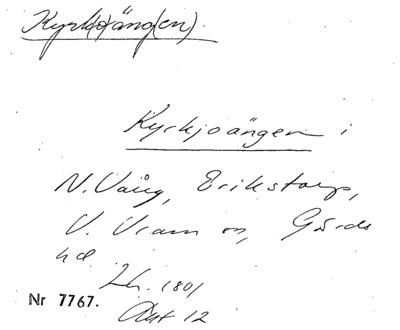 Kyrk(o)äng(en).
Kyrkjoängen i
N. Vång, Erikstorp,
V. Vram sn, Gärds
hd.
Lh. 1801
Akt 12
Nr 7767.